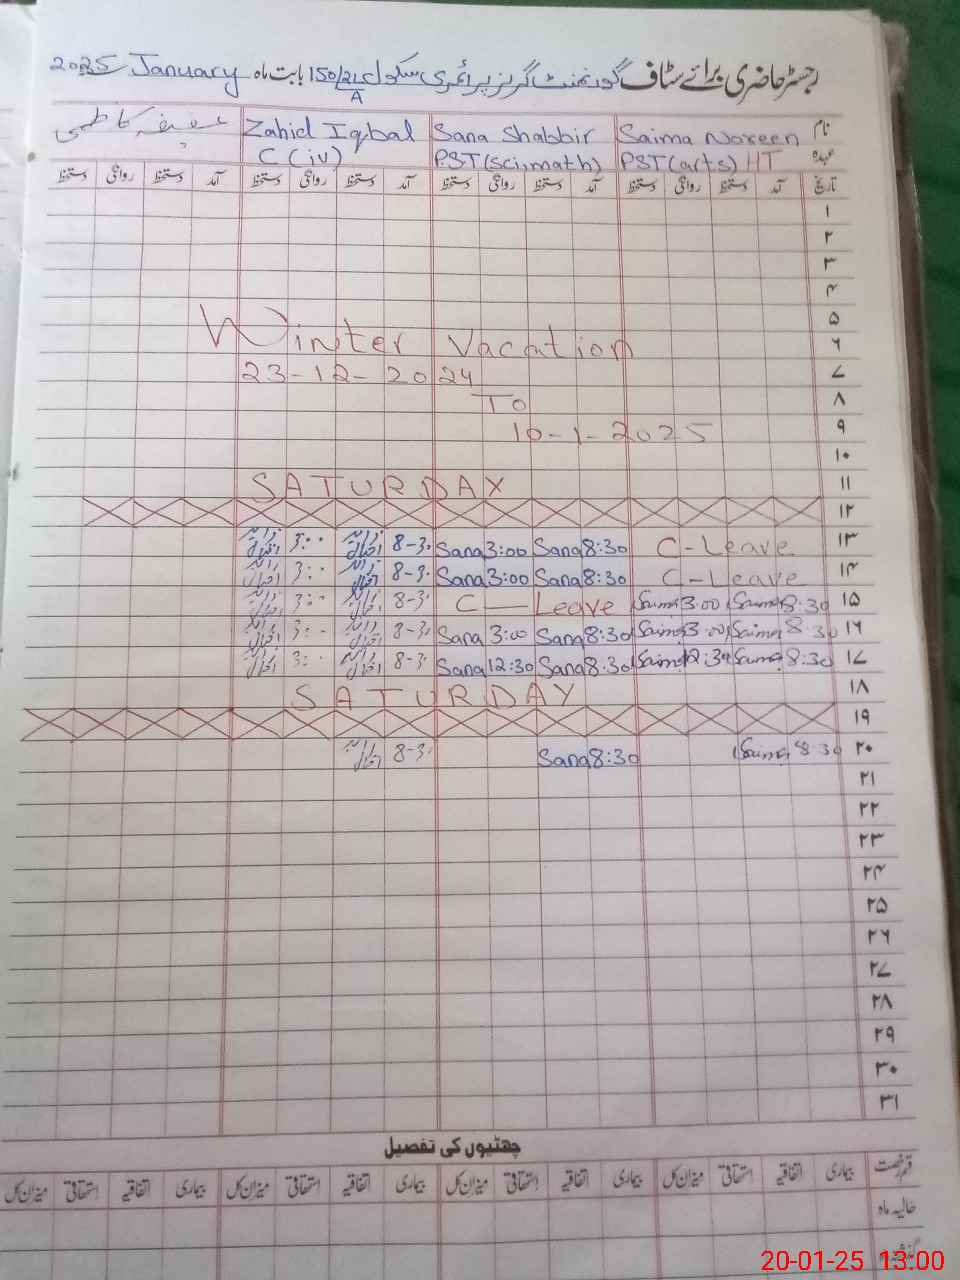 رجسٹر حاضری برائے سٹاف گورنمنٹ گرلز پرائمری سکول 150/2L بابت ماہ January 2025
A
نام Saima Noreen Sana Shabbir Zahid Iqbal
عہدہ PST(arts) HT PST(sci,math) C(iv)
تاریخ آمد دستخط روانگی دستخط آمد دستخط روانگی دستخط آمد دستخط روانگی دستخط آمد دستخط روانگی دستخط
۱
۲
۳
۴
۵
۶ Winter Vacation
۷ 23-12-2024
۸ To
۹ 10-1-2025
۱۰
۱۱ SATURDAY
۱۲
۱۳ C-Leave 8:30 Sana 3:00 Sana 8-3. 3:..
۱۴ C-Leave 8:30 Sana 3:00 Sana 8-3. 3:.
۱۵ 8:30 Saima 3:00 Saima C-Leave 8-3. 3:.
۱۶ 8:30 Saima 3:00 Saima 8:30 Sana 3:00 Sana 8-3. 3:.
۱۷ 8:30 Saima 12:30 Saima 8:30 Sana 12:30 Sana 8-3. 3:.
۱۸ SATURDAY
۱۹
۲۰ 8:30 Saima 8:30 Sana 8-3.
۲۱
۲۲
۲۳
۲۴
۲۵
۲۶
۲۷
۲۸
۲۹
۳۰
۳۱
چھٹیوں کی تفصیل
قسم رخصت بیماری اتفاقیہ استحقاقی میزان کل بیماری اتفاقیہ استحقاقی میزان کل بیماری اتفاقیہ استحقاقی میزان کل بیماری اتفاقیہ استحقاقی میزان کل
حالیہ ماہ
20-01-25 13:00